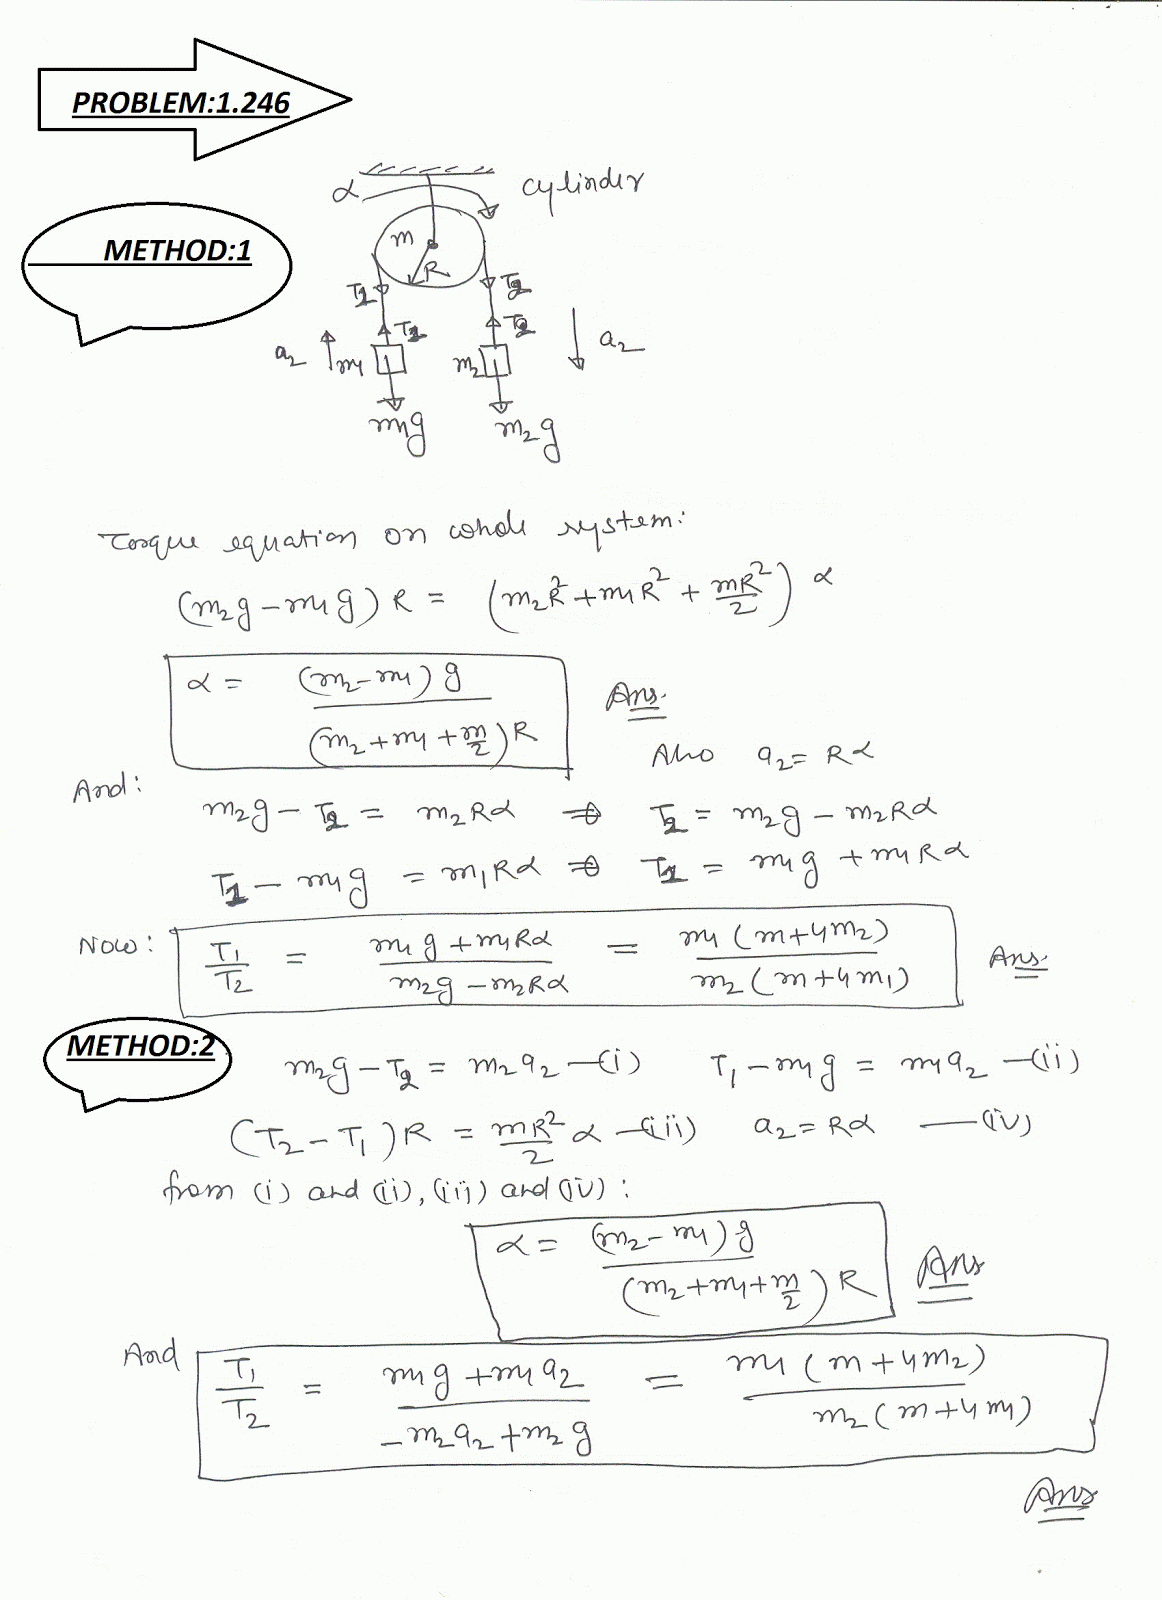 PROBLEM:1.246
α cylinder
METHOD:1
m
R
T1 T2
T1 T2
a2 m1 m2 a2
m1g m2g
Torque equation on whole system:
(m2g − m1g) R = (m2R² + m1R² + mR²/2) α
α = (m2 − m1) g / (m2 + m1 + m/2) R Ans.
Also a2 = Rα
And:
m2g − T2 = m2Rα ⇒ T2 = m2g − m2Rα
T1 − m1g = m1Rα ⇒ T1 = m1g + m1Rα
Now: T1/T2 = (m1g + m1Rα)/(m2g − m2Rα) = m1(m + 4m2)/m2(m + 4m1) Ans.
METHOD:2
m2g − T2 = m2a2 —(i) T1 − m1g = m1a2 —(ii)
(T2 − T1)R = mR²/2 α —(iii) a2 = Rα —(iv)
from (i) and (ii), (iii) and (iv) :
α = (m2 − m1) g / (m2 + m1 + m/2) R Ans
And T1/T2 = (m1g + m1a2)/(−m2a2 + m2g) = m1(m + 4m2)/m2(m + 4m1)
Ans